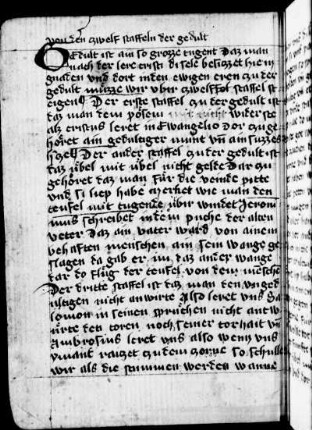 von den zwelf staffeln der gedult
Gedult ist ain so grozze tugent Daz man
nach der lere cristi di sele besitzet hie in
gnaden vnd dort in den ewigen eren zu der
gedult muzze wir vber zwelff staffel st
eigen Der erste staffel zu der gedult ist
daz man dem posem nicht wider ste
alz cristus leret in Ewangelio Dor zu ge
hôret ain gedultiger mint vnd ain suzzes
Der ander staffel zu der gedult ist
daz vbel mit vbel nicht gelde Dar zu
gehôret daz man fur die veinde pitte
vnd si liep habe merket wie man den
teufel mit tugende vber windet Jeroni
mus schreibet in dem puche der alten
veter Daz ain vater ward von ainem
behaften menschen an sein wange ge
slagen da gab er im daz ander wange
dar do flug der teufel von dem mensche
Der dritte staffel ist daz man den vnged
ultigen nicht anwurte Also leret vns Sa
lomon in seinen spruchen nicht antw
ûrte den toren noch seiner torhait vnd
Ambrosius leret vns also wenn vns
ymant raitzet zu dem zorne so schulle
wir als die stummen werden wanne